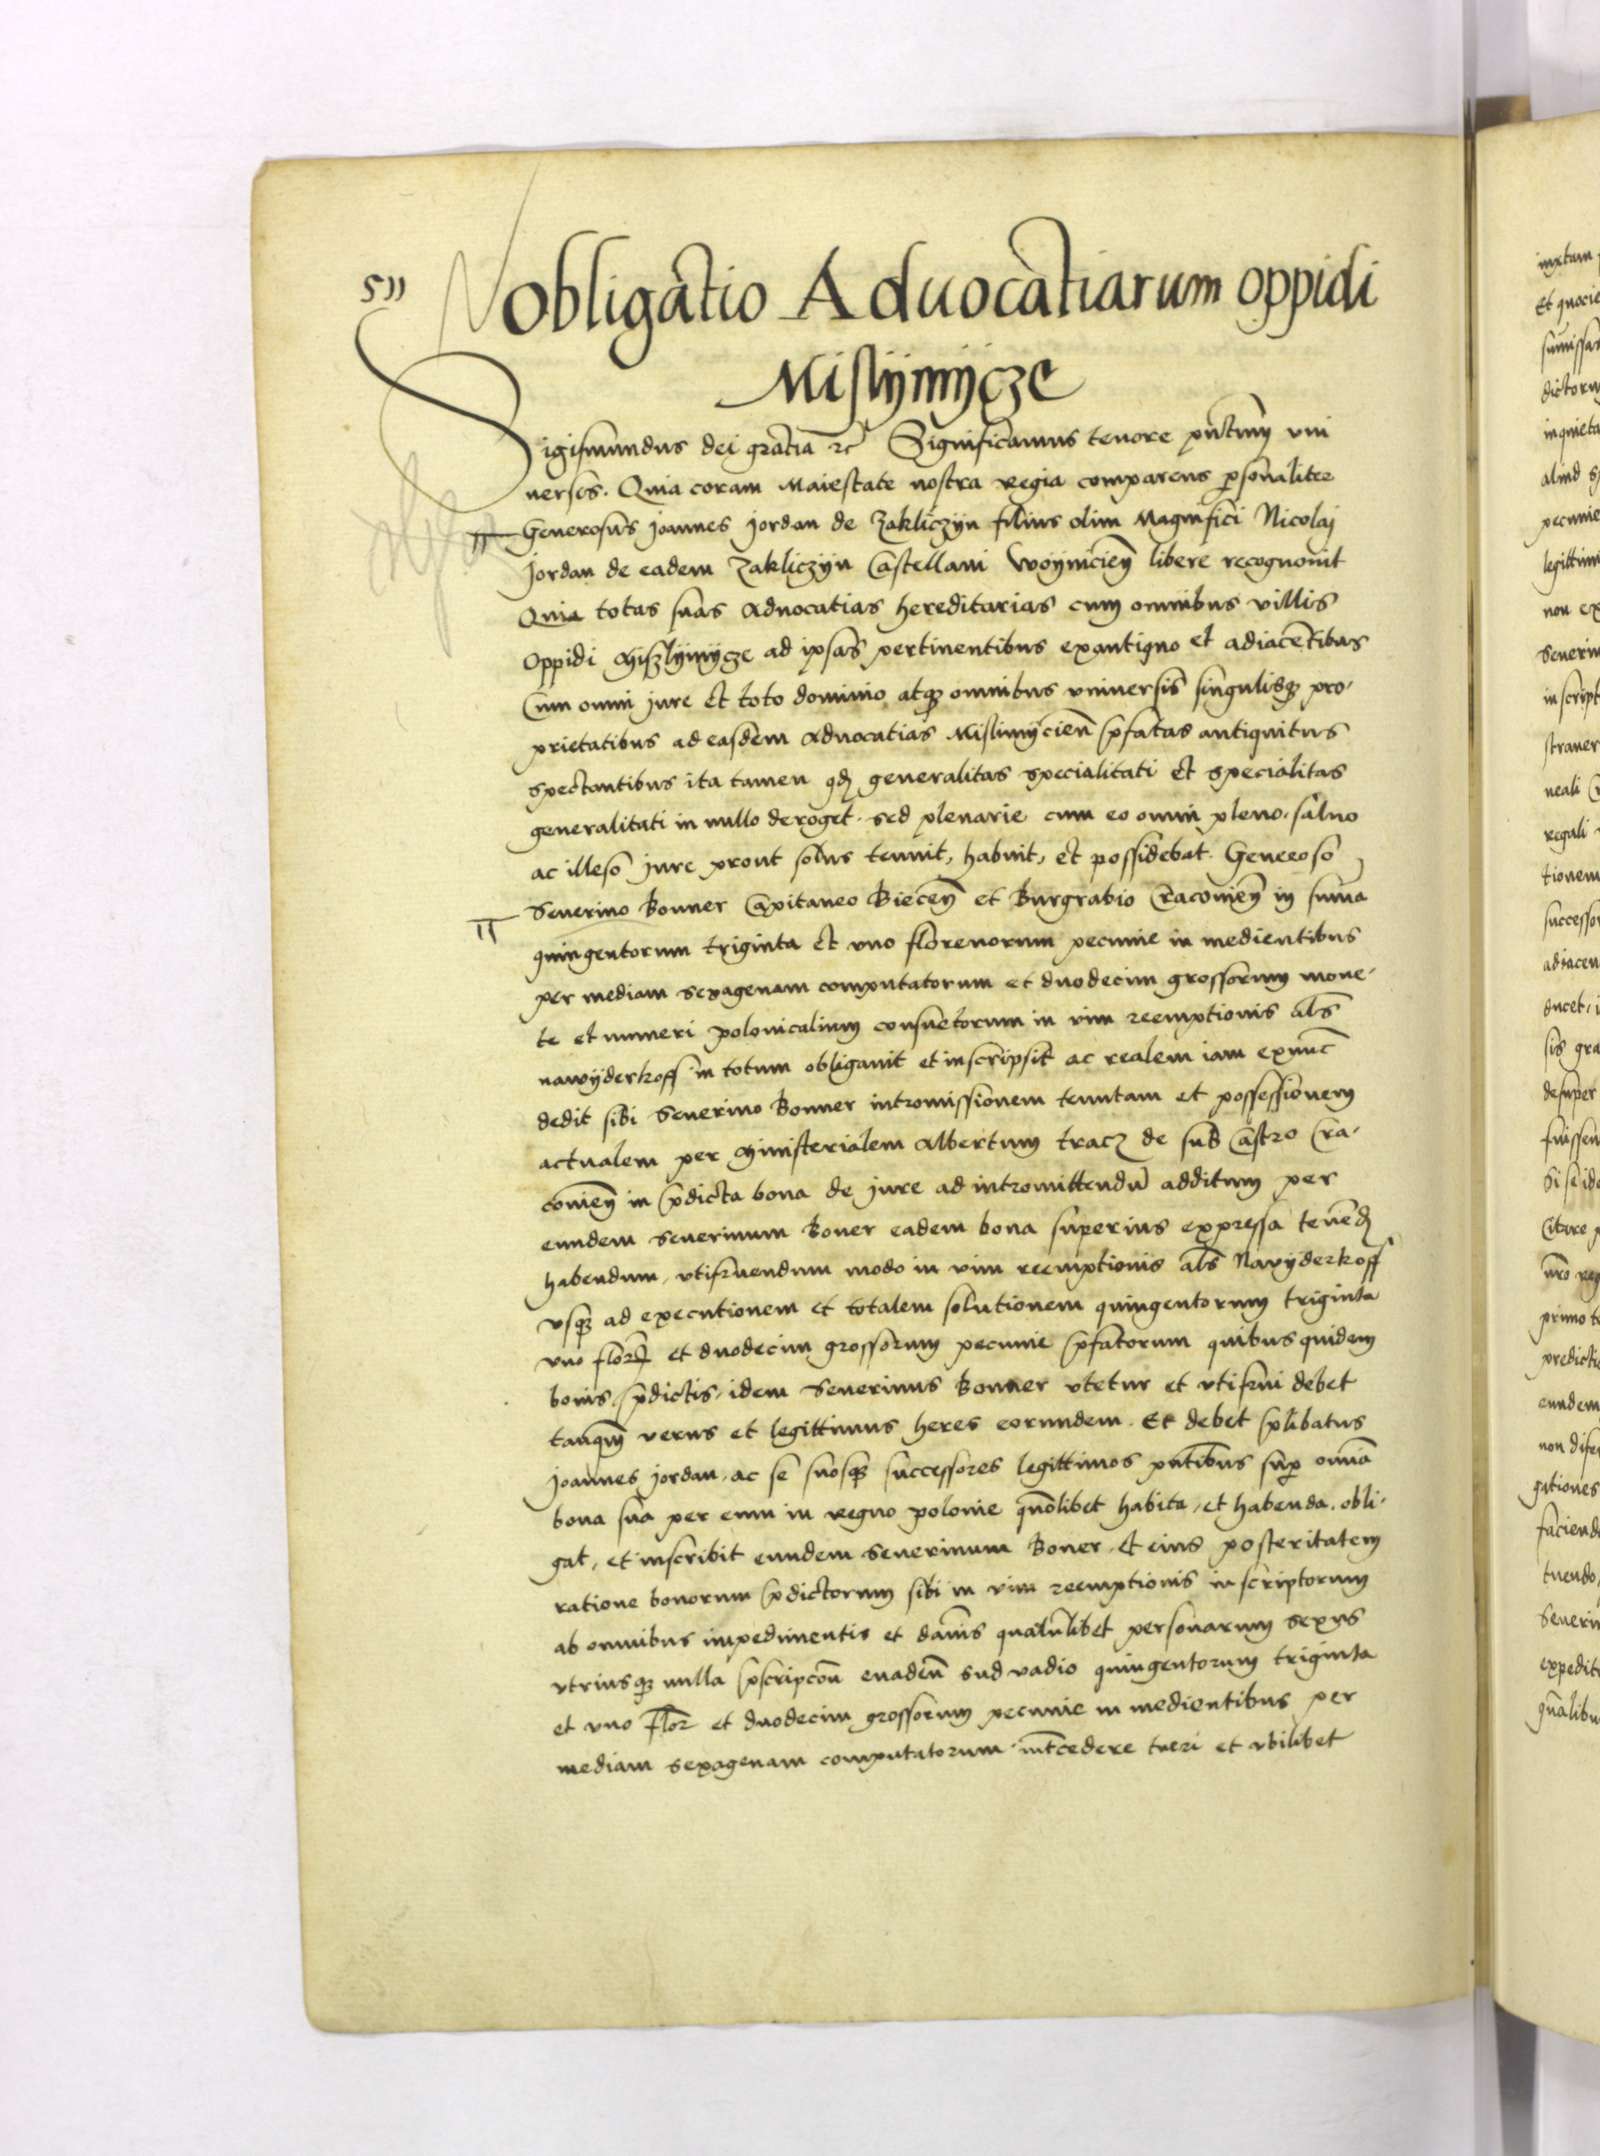 511
Obligatio Aduocatiarum oppidi
Mislijmijcze
Sigismundus dei gratia etc Significamus tenore pñtium vni
uersis. Quia coram Maiestate nostra regia comparens personaliter
Generosus Joannes Jordan de Zakliczijn filius olim Magnifici Nicolaj
Jordan de eadem Zakliczijn Castellani Woijnicień libere recognouit
Quia totas suas aduocatias hereditarias cum omnibus villis
Oppidi Miszlijmijcze ad ipsas pertinentibus exantiquo et adiacẽtibus
Cum omni jure et toto dominio atqȝ omnibus vniuersis singulisqȝ pro-
prietatibus ad easdem aduocatias Mislimijcień p̃fatas antiquitus
spectantibus ita tamen qđ generalitas specialitati et specialitas
generalitati in nullo deroget. sed plenarie cum eo omni pleno, saluo
ac illeso jure prout solus tenuit, habuit, et possidebat. Generoso
Seuerino Bonner Capitaneo Biecen̄ et Burgrabio Cracouien̄ in sũma
quingentorum triginta et vno florenorum pecunie in medientibus
per mediam sexagenam computatorum et duodecim grossorum mone-
te et numeri polonicalium consuetorum in vim reemptionis als
nawijderkoff in totum obligauit et inscripsit ac realem iam exnunc
dedit sibi Seuerino Bonner intromissionem tenutam et possessionem
actualem per Ministerialem Albertum tracz de sub Castro Cra-
couien̄ in p̃dicta bona de jure ad intromittendũ additum per
eundem Seuerinum Boner eadem bona superius expressa tenẽđ
habendum, vtifruendum modo in vim reemptionis als Nawijderkoff
vsqȝ ad executionem et totalem solutionem quingentorum triginta
vno floren̄ et duodecim grossorum pecunie p̃fatorum quibus quidem
bonis, p̃dictis, idem Seuerinus Bonner vtetur et vtifrui debet
tanq̃m verus et legittimus heres eorundem. Et debet p̃libatus
Joannes Jordan, ac se suosqȝ successores legittimos pñtibus sup̱ om̃ia
bona sua per eum in regno polonie quõlibet habita, et habenda, obli-
gat, et inscribit eundem Seuerinum Boner, et eius posteritatem
ratione bonorum p̃dictorum sibi in vim reemptionis inscriptorum
ab omnibus impedimentis et dam̃is qualũlibet personarum sexus
vtriusqȝ nulla p̃scripcoñ euadeñ sud vadio quingentorum triginta
et vno flor̃ et duodecim grossorum pecunie in medientibus per
mediam sexagenam computatorum, int̃cedere tueri et vbilibet